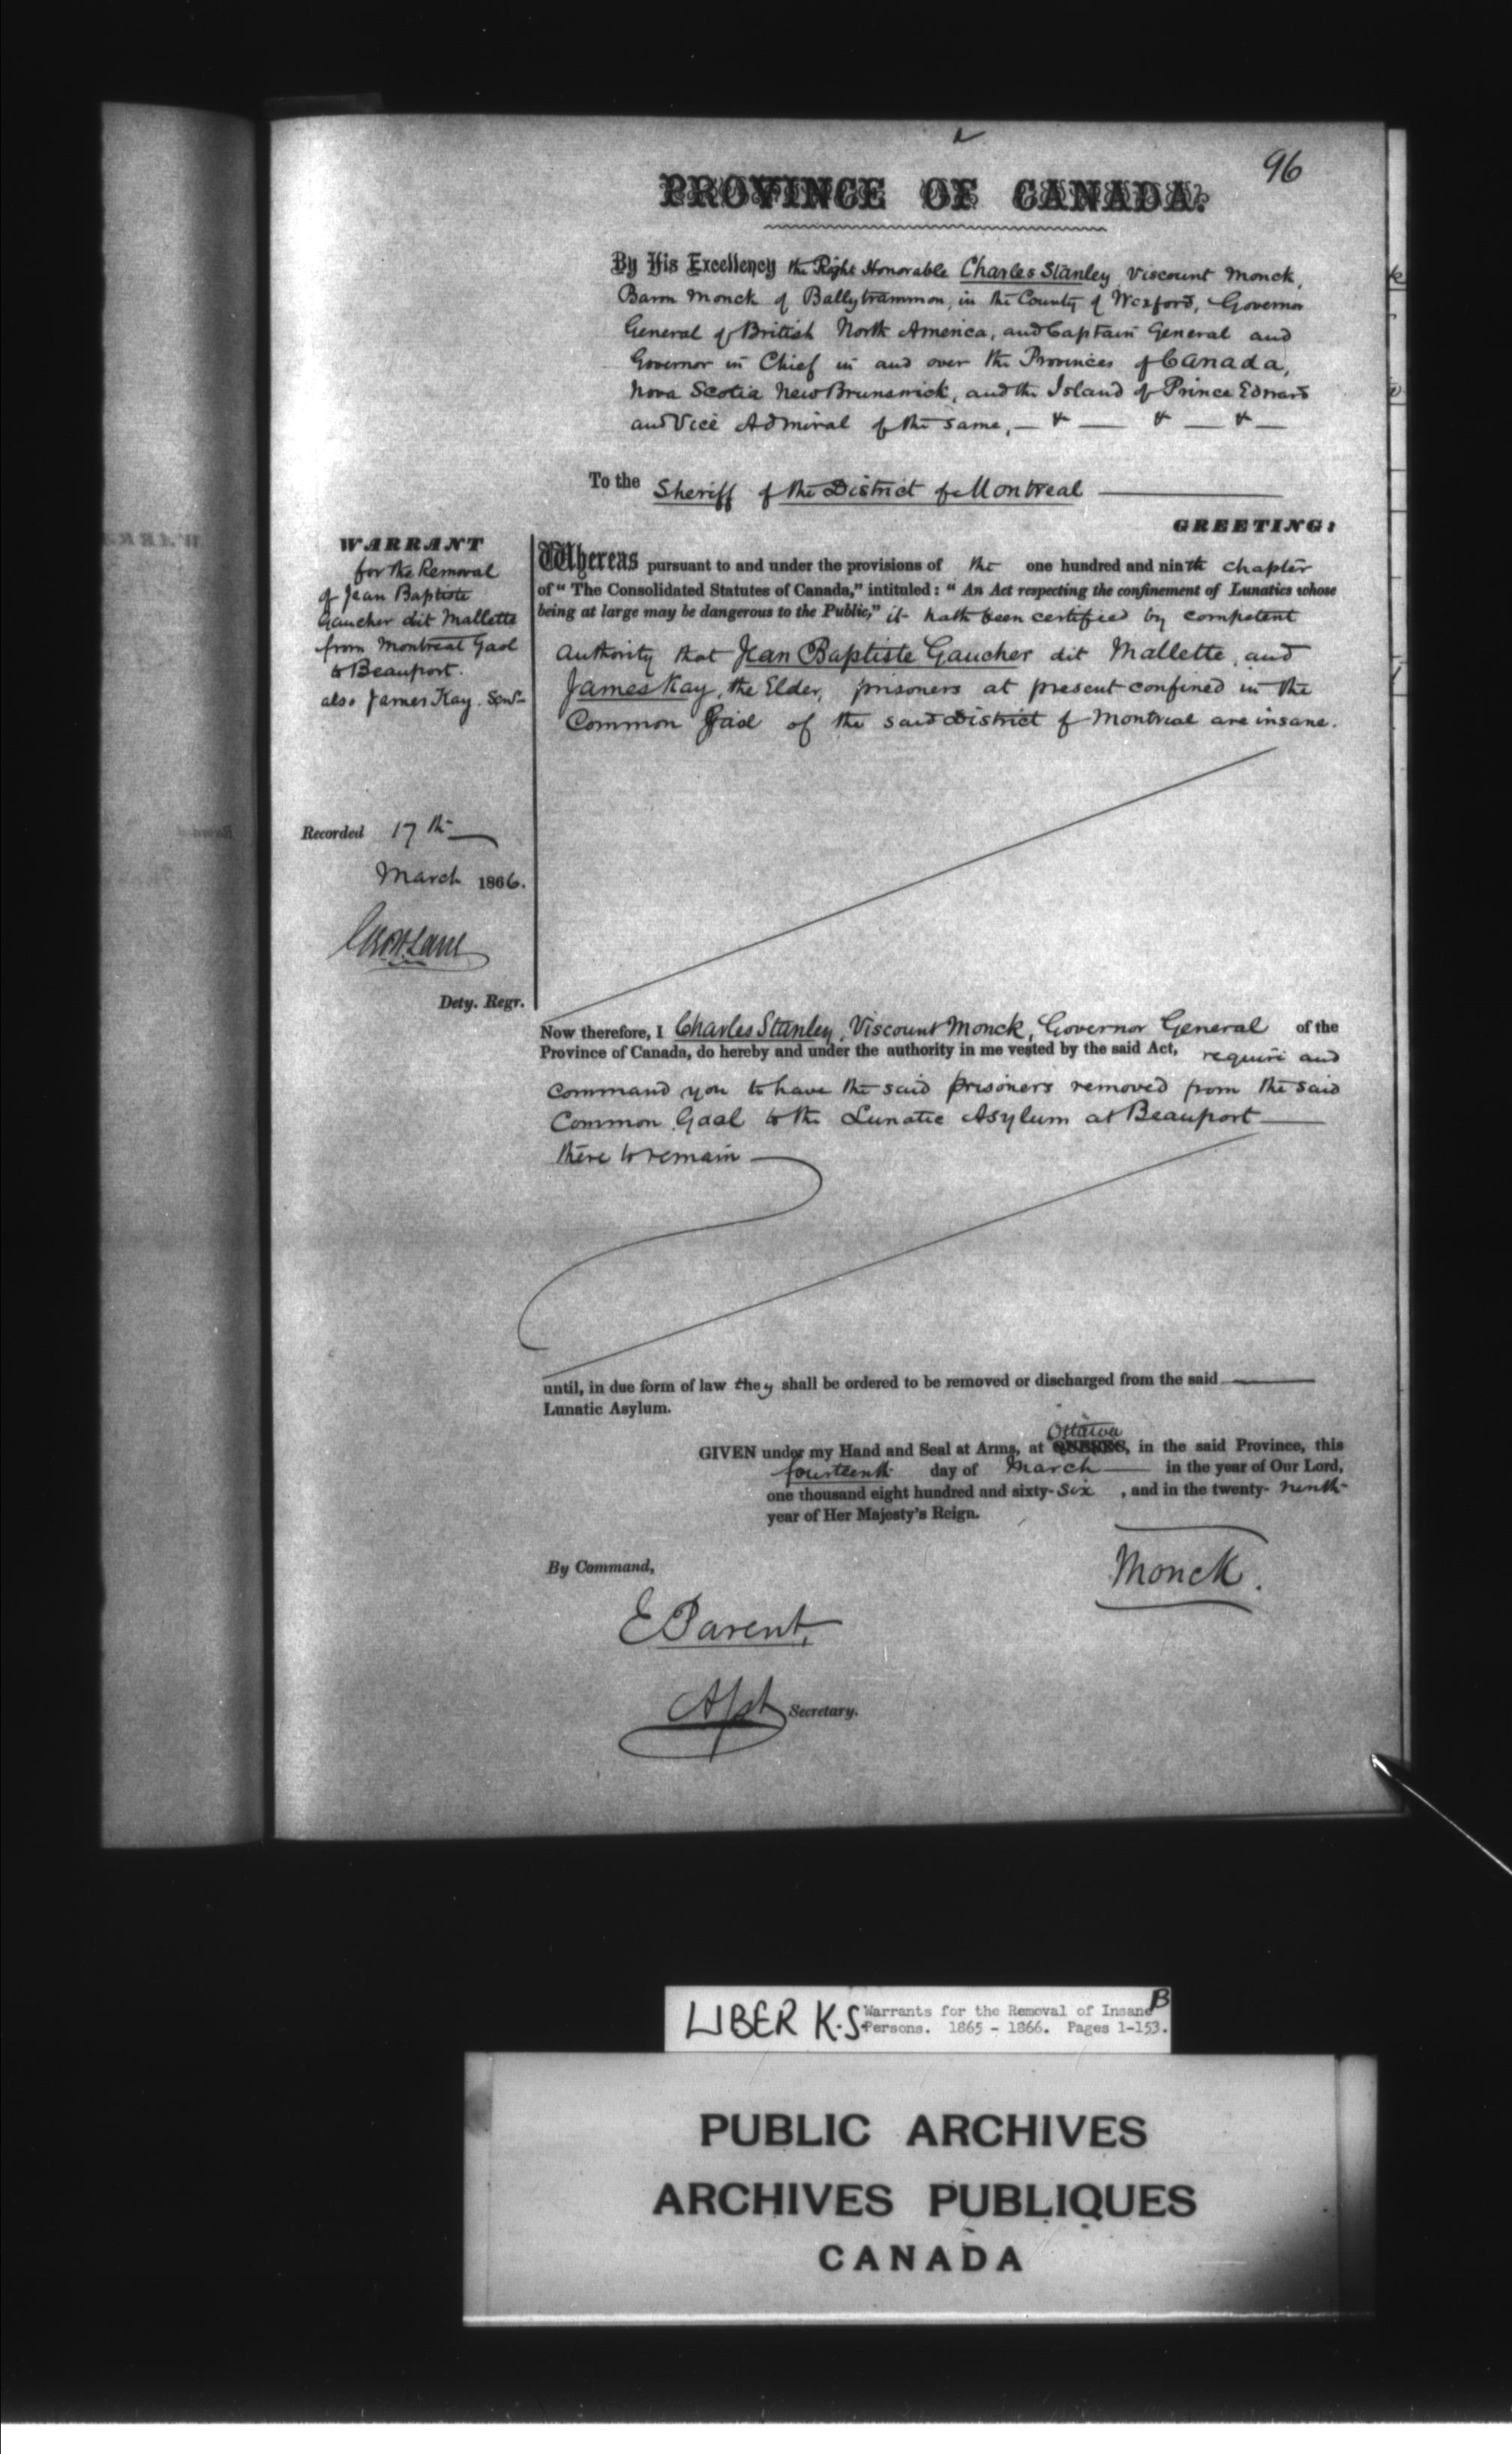 96
PROVINCE OF CANADA.
By His Excellency the Right Honorable Charles Stanley Viscount Monck,
Baron Monck of Ballytrammon, in the County of Wexford, Governor
General of British North America, and Captain General and
Governor in Chief in and over the Provinces of Canada,
Nova Scotia New Brunswick, and the Island of Prince Edward
and Vice Admiral of the same, — & — & — & —
To the Sheriff of the District of Montreal
GREETING:
WARRANT
for the Removal
of Jean Baptiste
Gaucher dit Mallette
from Montreal Gaol
to Beauport.
also James Kay. Senr
Recorded 17th
March 1866.
Dety. Regr.
Whereas pursuant to and under the provisions of the one hundred and ninth chapter
of "The Consolidated Statutes of Canada," intituled: "An Act respecting the confinement of Lunatics whose
being at large may be dangerous to the Public," it hath been certified by competent
authority that Jean Baptiste Gaucher dit Mallette, and
James Kay, the Elder, prisoners at present confined in the
Common Gaol of the said District of Montreal are insane.
Now therefore, I Charles Stanley, Viscount Monck, Governor General of the
Province of Canada, do hereby and under the authority in me vested by the said Act, require and
command you to have the said prisoners removed from the said
Common Gaol to the Lunatic Asylum at Beauport
there to remain
until, in due form of law they shall be ordered to be removed or discharged from the said
Lunatic Asylum.
Ottawa
GIVEN under my Hand and Seal at Arms, at QUEBEC, in the said Province, this
fourteenth day of March in the year of Our Lord,
one thousand eight hundred and sixty-six, and in the twenty-ninth
year of Her Majesty's Reign.
Monck.
By Command,
E Parent,
Asst Secretary.
LIBER K.S. Warrants for the Removal of Insane B
Persons. 1865 - 1866. Pages 1-153.
PUBLIC ARCHIVES
ARCHIVES PUBLIQUES
CANADA